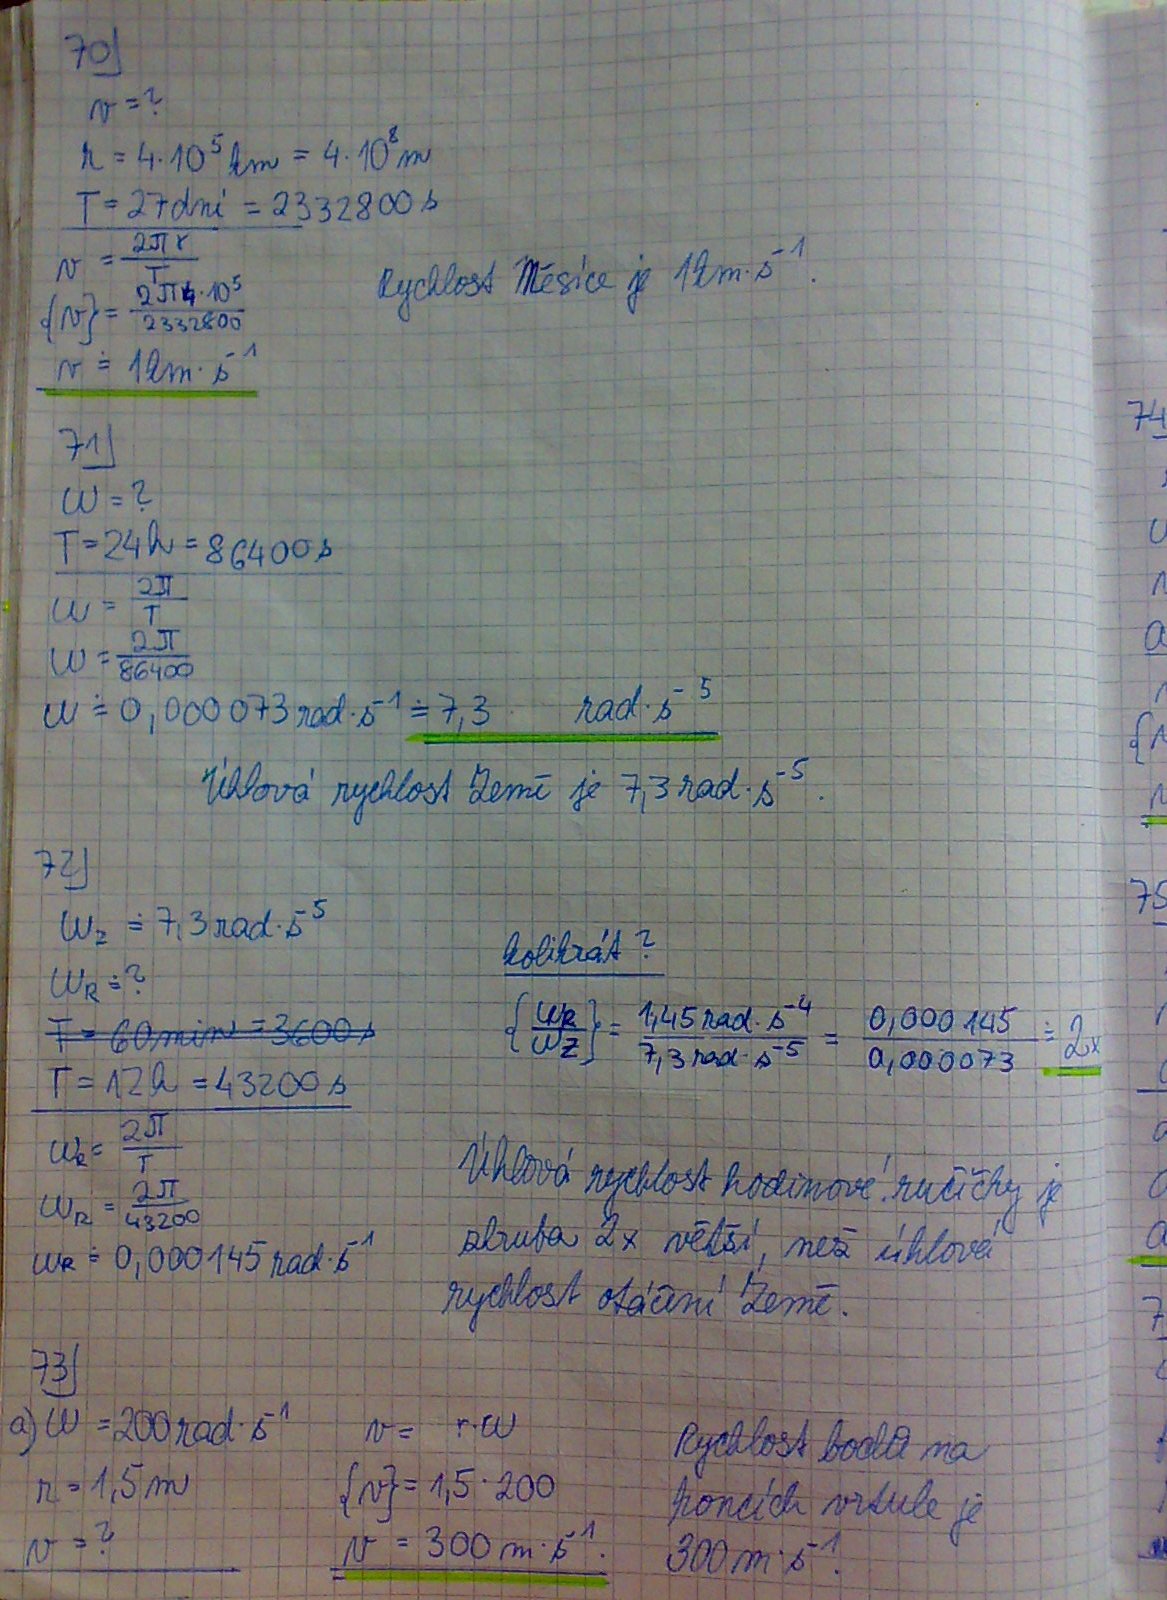 70)
v = ?
r = 4·10⁵ km = 4·10⁸ m
T = 27 dní = 2332800 s
v = 2πr/T
{v} = 2π4·10⁵/2332800
v ≐ 1 km·s⁻¹
Rychlost Měsíce je 1 km·s⁻¹.
71)
ω = ?
T = 24 h = 86400 s
ω = 2π/T
ω = 2π/86400
ω ≐ 0,000073 rad·s⁻¹ ≐ 7,3 rad·s⁻⁵
Úhlová rychlost Země je 7,3 rad·s⁻⁵.
72)
ω_Z ≐ 7,3 rad·s⁻⁵
ω_R = ?
T = 60 min = 3600 s
T = 12 h = 43200 s
ω_R = 2π/T
ω_R = 2π/43200
ω_R ≐ 0,000145 rad·s⁻¹
kolikrát?
{ω_R/ω_Z} = 1,45 rad·s⁻⁴/7,3 rad·s⁻⁵ = 0,000145/0,000073 ≐ 2x
Úhlová rychlost hodinové ručičky je
zhruba 2x větší, než úhlová
rychlost otáčení Země.
73)
a) ω = 200 rad·s⁻¹
r = 1,5 m
v = ?
v = r·ω
{v} = 1,5·200
v = 300 m·s⁻¹.
Rychlost bodů na
koncích vrtule je
300 m·s⁻¹.
74
75